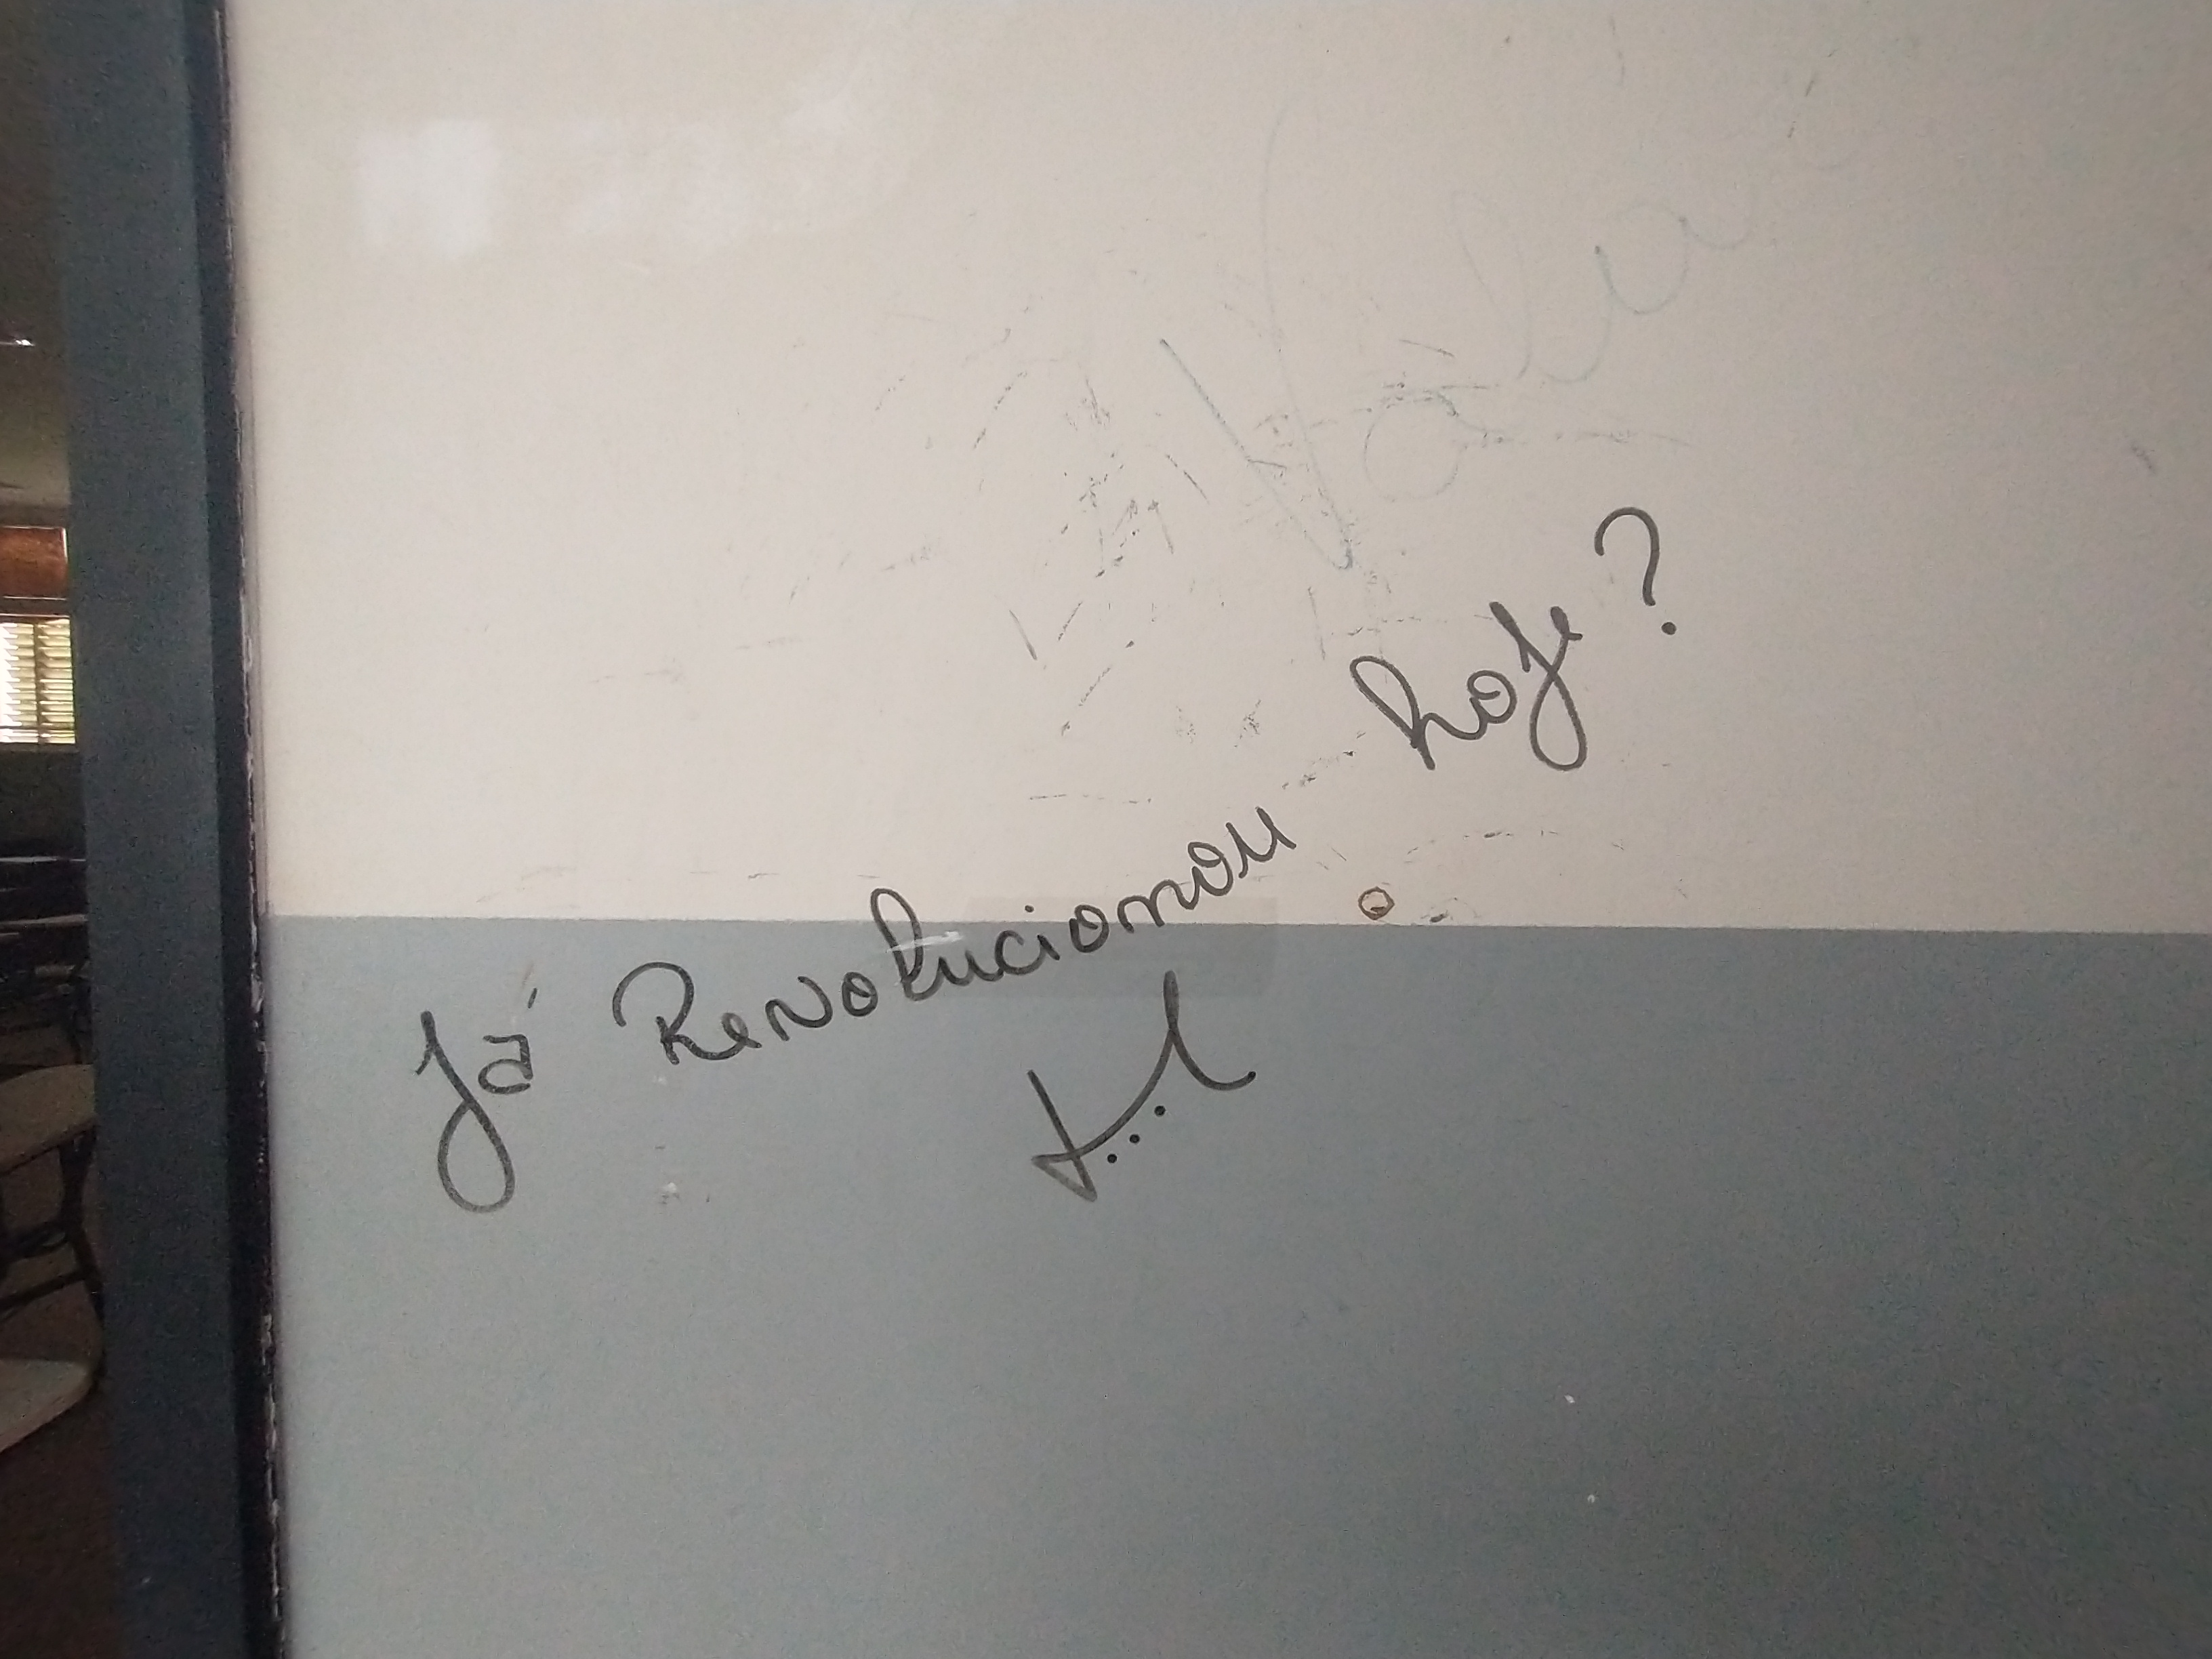 Já Revolucionou hoje?